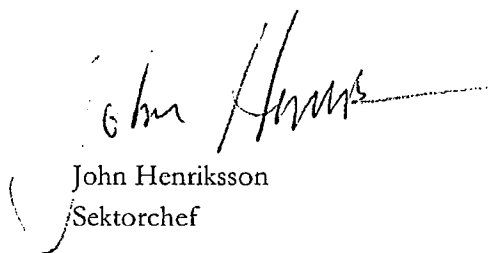 John Henriksson
John Henriksson
Sektorchef